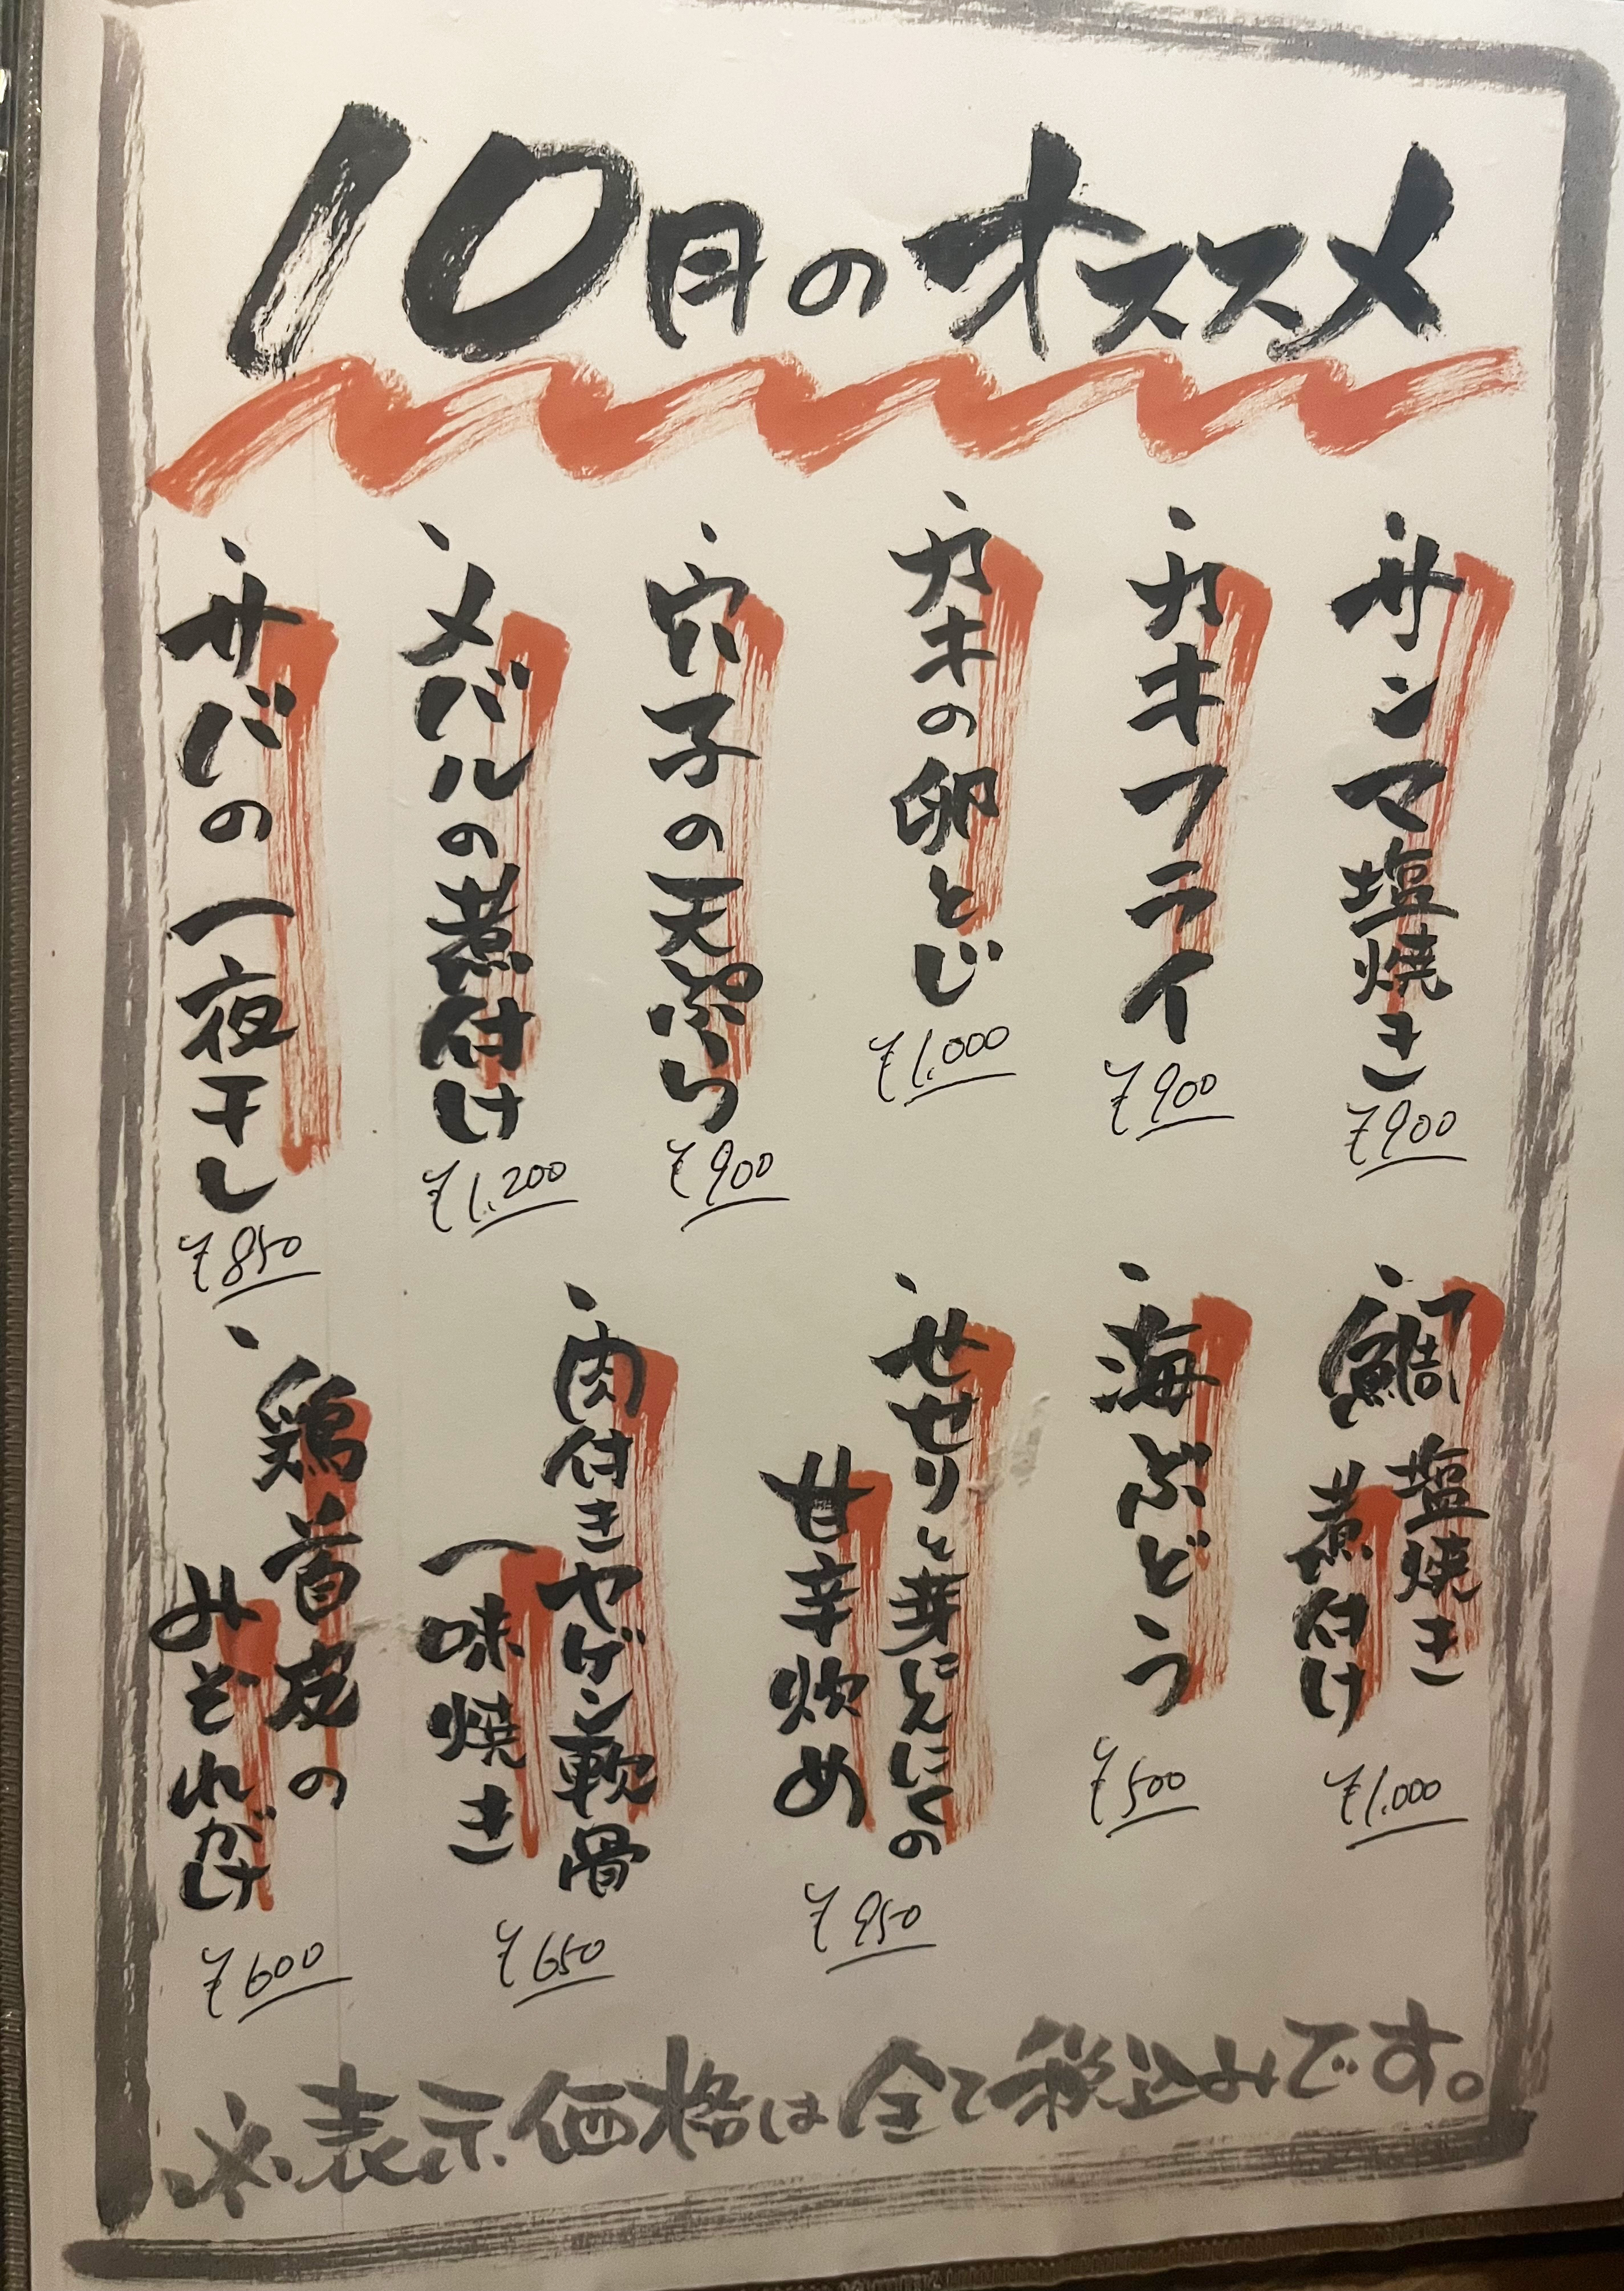 10月のオススメ
・サンマ塩焼き
¥900
・カキフライ
¥900
・カキの卵とじ
¥1,000
・穴子の天ぷら
¥900
・メバルの煮付け
¥1,200
・サバの一夜干し
¥850
・鯛 塩焼き
煮付け
¥1,000
・海ぶどう
¥500
・せせりと芽にんにくの
甘辛炊め
¥950
・肉付きヤゲン軟骨
一味焼き
¥650
・鶏首皮の
みぞれがけ
¥600
※表示価格は全て税込みです。